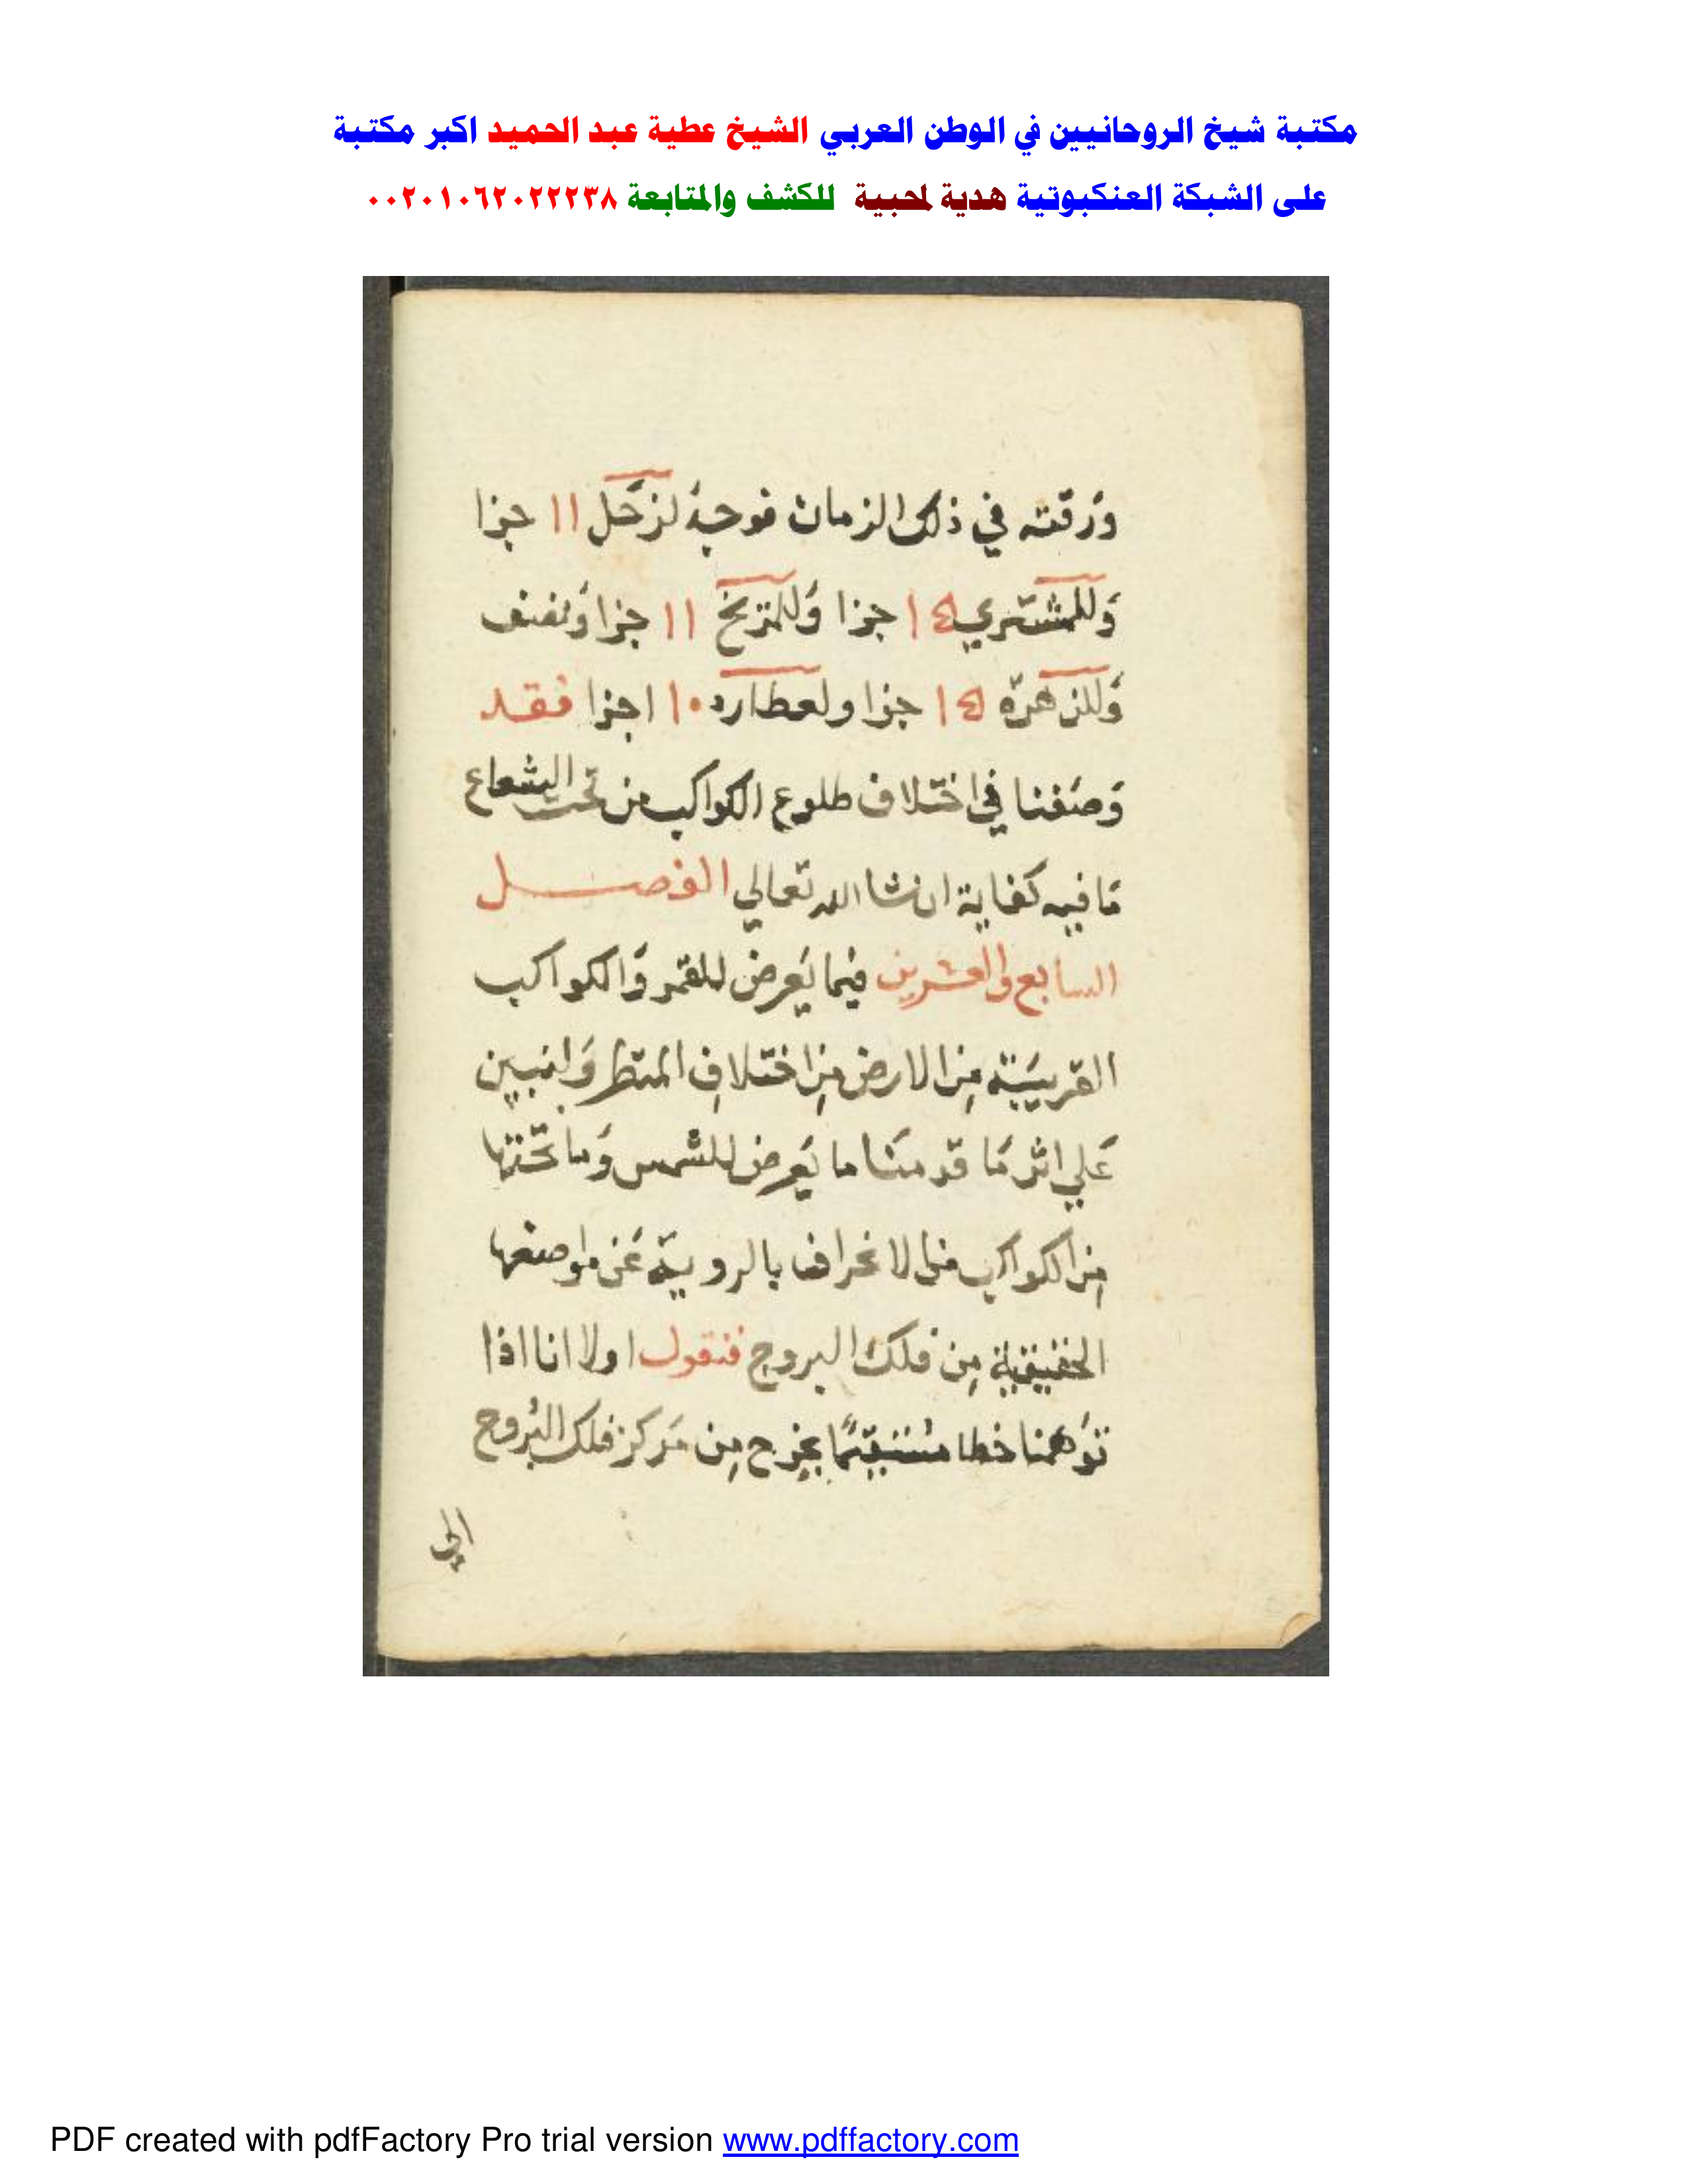 مكتبة شيخ الروحانيين في الوطن العربي الشيخ عطية عبد الحميد اكبر مكتبة
على الشبكة العنكبوتية هدية لمحبية للكشف والمتابعة ٠٠٢٠١٠٦٢٠٢٢٢٣٨
ورقته في ذلك الزمان فوجد لزحل ١١ جزا
وللمشتري ١٤ جزا وللمريخ ١١ جزا ونصف
وللزهرة ١٤ جزا ولعطارد ١٠ اجزا فقد
وصفنا في اختلاف طلوع الكواكب من تحت الشعاع
ما فيه كفاية ان شا الله تعالي الفصل
السابع والعشرين فيما يعرض للقمر والكواكب
القريبة من الارض من اختلاف المنظر
علي اثر ما قدمنا ما يعرض للشمس وما تحتها
من الكواكب من الانحراف بالروية عن مواضعها
الحقيقية من فلك البروج فنقول اولا انا اذا
توهمنا خطا مستقيما يخرج من مركز فلك البروج
الي
PDF created with pdfFactory Pro trial version www.pdffactory.com